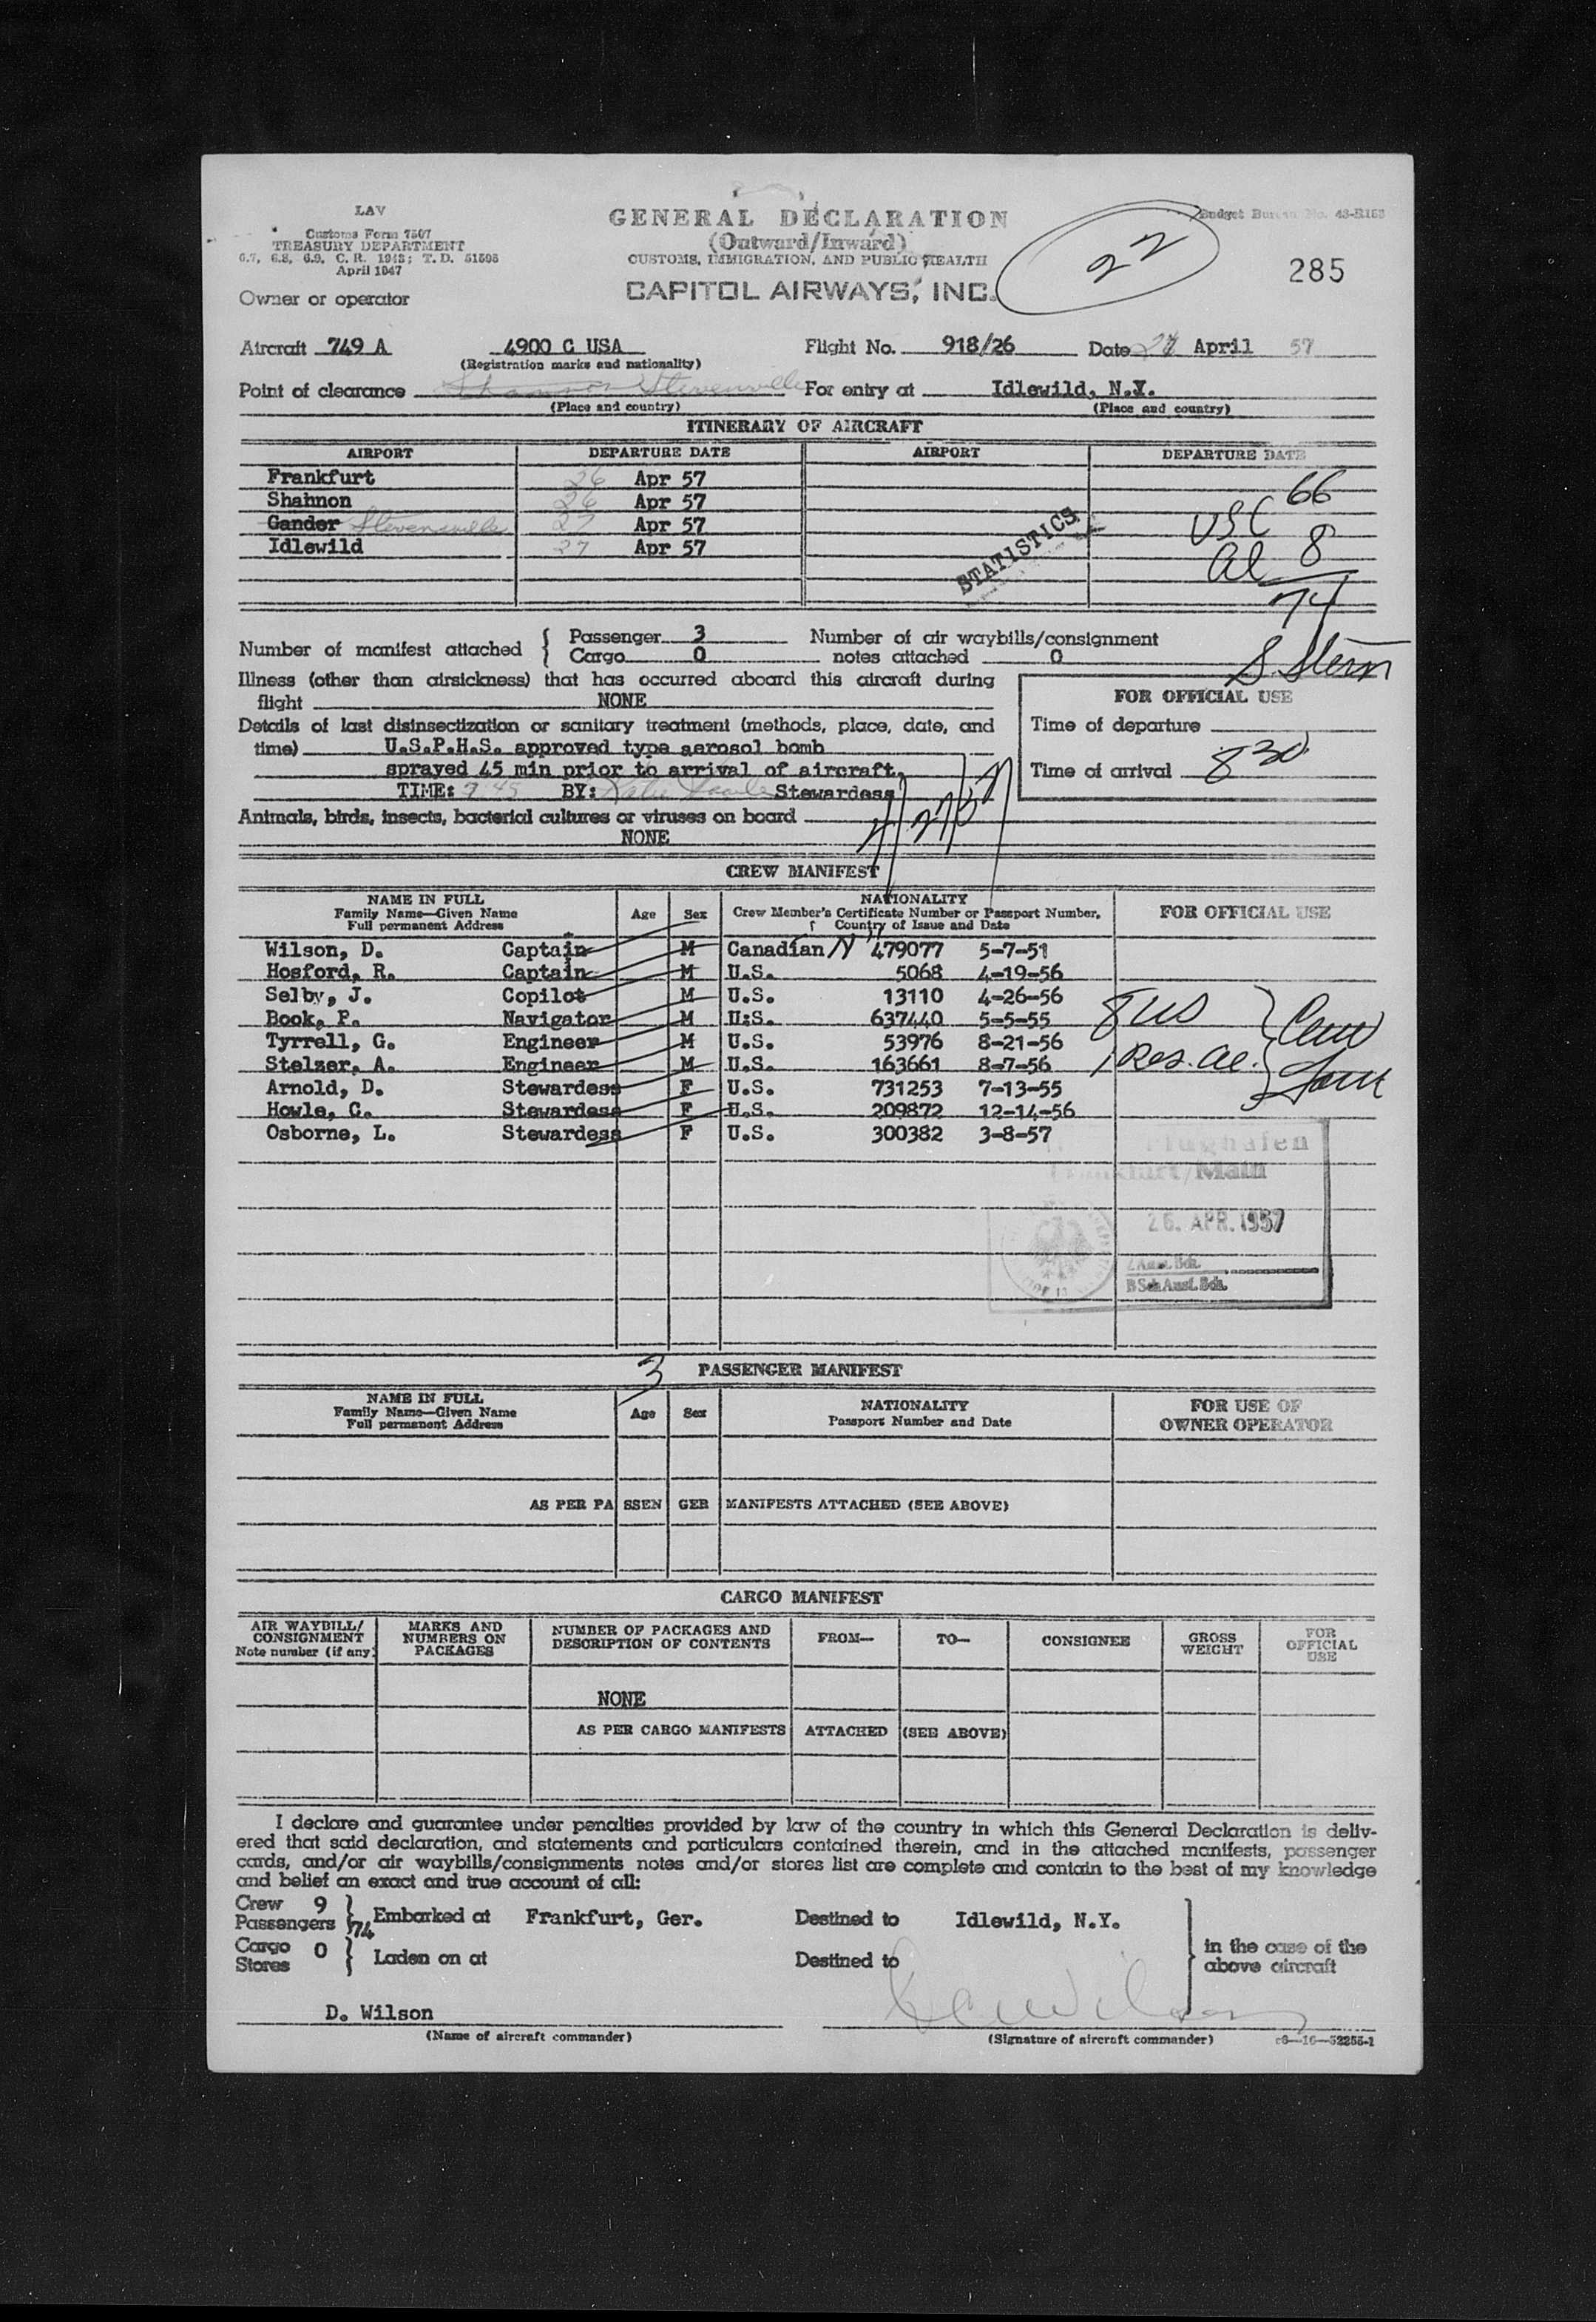 LAV
Customs Form 7507
TREASURY DEPARTMENT
6.7, 6.8, 6.9, C. R. 1943; T. D. 51595
April 1947
GENERAL DECLARATION
(Outward/Inward)
CUSTOMS, IMMIGRATION, AND PUBLIC HEALTH
CAPITOL AIRWAYS, INC.
Budget Bureau No. 43-R153
22
285
Owner or operator
Aircraft 749 A 4900 C USA Flight No. 918/26 Date 27 April 57
(Registration marks and nationality)
Point of clearance Shannon Stevenville For entry at Idlewild, N.Y.
(Place and country) (Place and country)
ITINERARY OF AIRCRAFT
AIRPORT DEPARTURE DATE AIRPORT DEPARTURE DATE
Frankfurt 26 Apr 57 66
Shannon 26 Apr 57 USC
Gander Stevensville 27 Apr 57 al 8
Idlewild 27 Apr 57 74
STATISTICS
Number of manifest attached { Passenger 3 Number of air waybills/consignment
Cargo 0 notes attached 0
S. Stern
Illness (other than airsickness) that has occurred aboard this aircraft during
flight NONE
FOR OFFICIAL USE
Details of last disinsectization or sanitary treatment (methods, place, date, and Time of departure
time) U.S.P.H.S. approved type aerosol bomb
sprayed 45 min prior to arrival of aircraft. Time of arrival 8 30
TIME: BY: Stewardess
Animals, birds, insects, bacterial cultures or viruses on board 4/27/57
NONE
CREW MANIFEST
NAME IN FULL
Family Name—Given Name
Full permanent Address
Age Sex
NATIONALITY
Crew Member's Certificate Number or Passport Number,
Country of Issue and Date
FOR OFFICIAL USE
Wilson, D. Captain M Canadian 479077 5-7-51
Hosford, R. Captain M U.S. 5068 4-19-56
Selby, J. Copilot M U.S. 13110 4-26-56
Book, P. Navigator M U:S. 637440 5-5-55
Tyrrell, G. Engineer M U.S. 53976 8-21-56
Stelzer, A. Engineer M U.S. 163661 8-7-56
Arnold, D. Stewardess F U.S. 731253 7-13-55
Howle, C. Stewardess F U.S. 209872 12-14-56
Osborne, L. Stewardess F U.S. 300382 3-8-57
8 US
1 Res. al.
Flughafen
Frankfurt/Main
26. APR. 1957
BSchAust.Bch.
3 PASSENGER MANIFEST
NAME IN FULL
Family Name—Given Name
Full permanent Address
Age Sex
NATIONALITY
Passport Number and Date
FOR USE OF
OWNER OPERATOR
AS PER PASSENGER MANIFESTS ATTACHED (SEE ABOVE)
CARGO MANIFEST
AIR WAYBILL/
CONSIGNMENT
Note number (if any)
MARKS AND
NUMBERS ON
PACKAGES
NUMBER OF PACKAGES AND
DESCRIPTION OF CONTENTS
FROM— TO— CONSIGNEE
GROSS
WEIGHT
FOR
OFFICIAL
USE
NONE
AS PER CARGO MANIFESTS ATTACHED (SEE ABOVE)
I declare and guarantee under penalties provided by law of the country in which this General Declaration is deliv-
ered that said declaration, and statements and particulars contained therein, and in the attached manifests, passenger
cards, and/or air waybills/consignments notes and/or stores list are complete and contain to the best of my knowledge
and belief an exact and true account of all:
Crew 9
Passengers 74 } Embarked at Frankfurt, Ger. Destined to Idlewild, N.Y.
Cargo 0
Stores } Laden on at Destined to
in the case of the
above aircraft
D. Wilson
(Name of aircraft commander) (Signature of aircraft commander) c8—16—52255-1